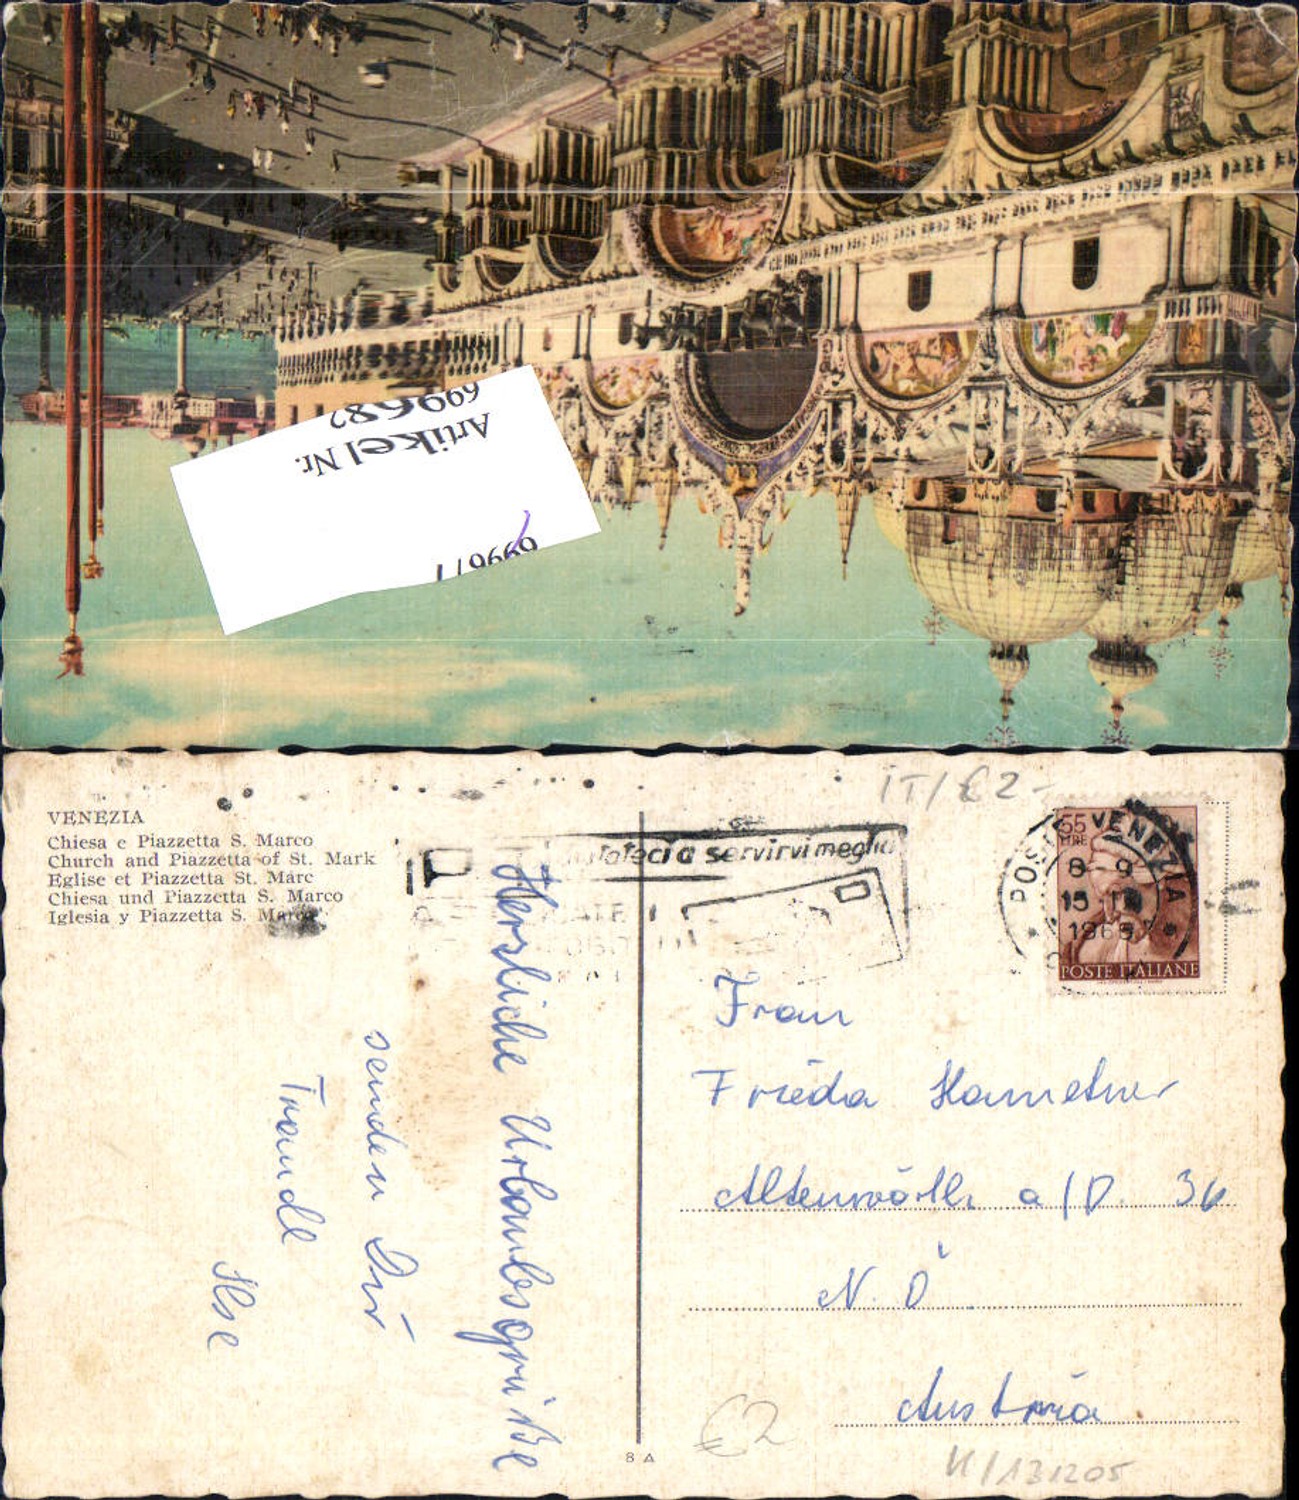 Artikel Nr.
699682
699677
IT/€2-
VENEZIA
Chiesa e Piazzetta S. Marco
Church and Piazzetta of St. Mark
Eglise et Piazzetta St. Marc
Chiesa und Piazzetta S. Marco
Iglesia y Piazzetta S. Marco
servirvi meglio
55
LIRE
POSTE ITALIANE
VENEZIA
8-9
15
196
Herzliche Urlaubsgrüße
senden Dir
Traudl
Ilse
Frau
Frieda Hametner
Altenwörth a/D 36
N.Ö.
Austria
8 A
€2